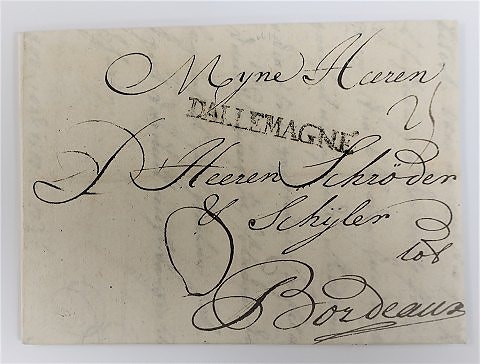 Myne Heeren
DALLEMAGNE
D Heeren Schröder
& Schÿler
tot
Bordeaux